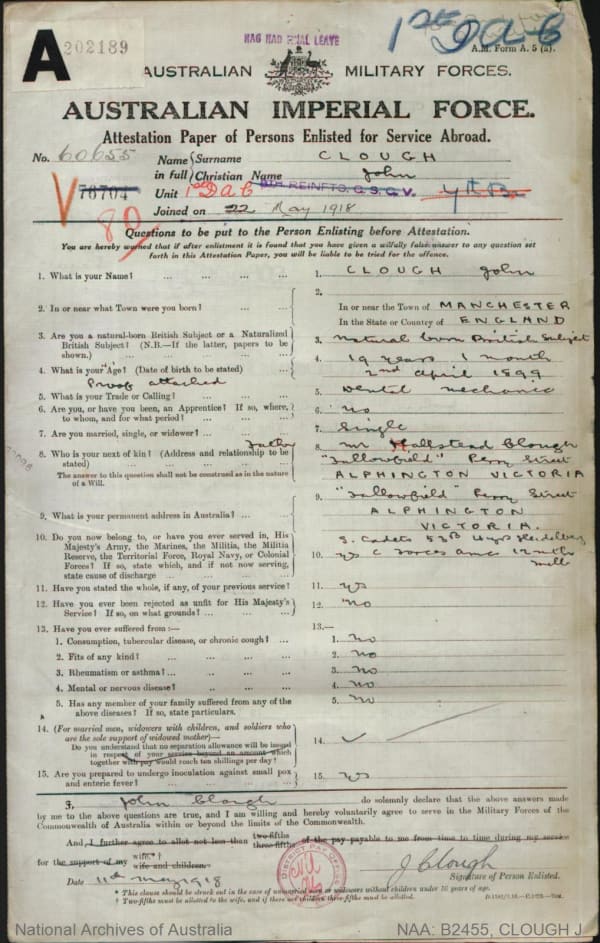 A 202189
HAS HAD FINAL LEAVE
1st D.A.C
A.M. Form A. 5 (a).
AUSTRALIAN MILITARY FORCES.
AUSTRALIAN IMPERIAL FORCE.
Attestation Paper of Persons Enlisted for Service Abroad.
No. 60655
76704
80
Name in full { Surname CLOUGH
Christian Name John
Unit 1st D a C 8TH REINFTS. G.S.G.V.
Joined on 22 May 1918
Questions to be put to the Person Enlisting before Attestation.
You are hereby warned that if after enlistment it is found that you have given a wilfully false answer to any question set
forth in this Attestation Paper, you will be liable to be tried for the offence.
1. What is your Name? ... ... ... 1. CLOUGH John
2. In or near what Town were you born? ... ... 2. In or near the Town of MANCHESTER
In the State or Country of ENGLAND
3. Are you a natural-born British Subject or a Naturalized
British Subject? (N.B.—If the latter, papers to be
shown.) ... ... ... 3. Natural born British Subject
4. What is your Age? (Date of birth to be stated) ... 4. 19 years 1 month
2nd April 1899
Proof attached
5. What is your Trade or Calling? ... ... 5. Dental mechanic
6. Are you, or have you been, an Apprentice? If so, where,
to whom, and for what period? ... ... 6. No
7. Are you married, single, or widower? ... ... 7. Single
8. Who is your next of kin? (Address and relationship to be
stated) ... ... ... Father
The answer to this question shall not be construed as in the nature
of a Will.
8. Mr Hallstead Clough
"Fallowfield" Perry Street
ALPHINGTON VICTORIA
9. What is your permanent address in Australia? ... ... 9. "Fallowfield" Perry Street
ALPHINGTON
VICTORIA.
10. Do you now belong to, or have you ever served in, His
Majesty's Army, the Marines, the Militia, the Militia
Reserve, the Territorial Force, Royal Navy, or Colonial
Forces? If so, state which, and if not now serving,
state cause of discharge ... ... ...
S. Cadets 53B Heidelberg
10. yes C Forces AMC 12 mths
11. Have you stated the whole, if any, of your previous service? 11. yes
12. Have you ever been rejected as unfit for His Majesty's
Service? If so, on what grounds? ... ... 12. No
13. Have you ever suffered from :— 13.—
1. Consumption, tubercular disease, or chronic cough? ... 1. No
2. Fits of any kind? ... ... ... 2. No
3. Rheumatism or asthma? ... ... ... 3. No
4. Mental or nervous disease? ... ... ... 4. No
5. Has any member of your family suffered from any of the
above diseases? If so, state particulars. 5. No
14. (For married men, widowers with children, and soldiers who
are the sole support of widowed mother)—
Do you understand that no separation allowance will be issued
in respect of your service beyond an amount which
together with pay would reach ten shillings per day? 14.
15. Are you prepared to undergo inoculation against small pox
and enteric fever? ... ... ... 15. yes
I, John Clough do solemnly declare that the above answers made
by me to the above questions are true, and I am willing and hereby voluntarily agree to serve in the Military Forces of the
Commonwealth of Australia within or beyond the limits of the Commonwealth.
And, I further agree to allot not less than two-fifths three-fifths of the pay payable to me from time to time during my service
for the support of my wife.* † wife and children.
J Clough
Signature of Person Enlisted.
Date 11th May 1918
* This clause should be struck out in the case of unmarried men or widowers without children under 16 years of age.
† Two-fifths must be allotted to the wife, and if there are children three-fifths must be allotted.
National Archives of Australia NAA: B2455, CLOUGH J